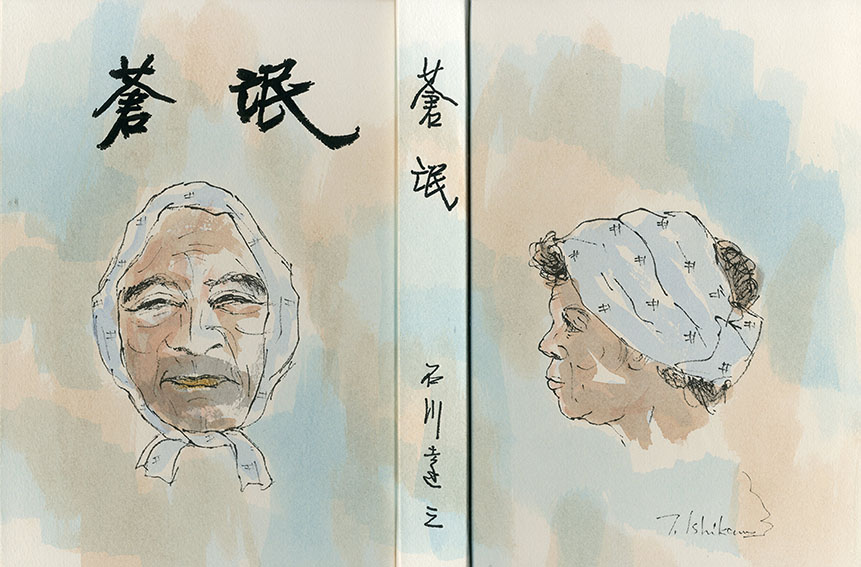 蒼氓
蒼氓
石川達三
T. Ishikawa